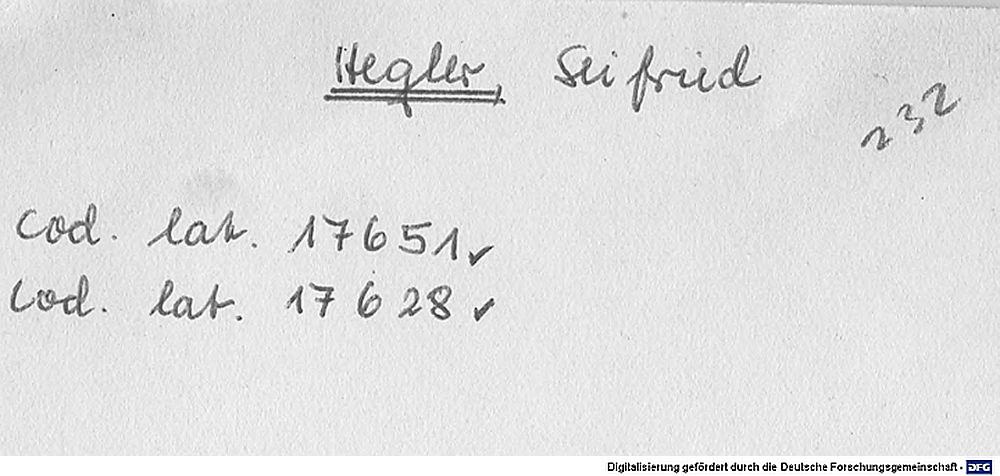 Hegler, Seifried
232
Cod. lat. 17651 ✓
Cod. lat. 17628 ✓
Digitalisierung gefördert durch die Deutsche Forschungsgemeinschaft - DFG